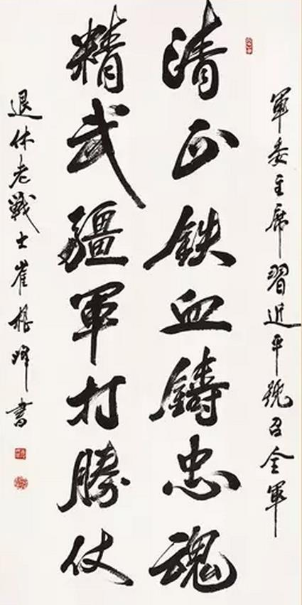 軍委主席習近平號召全軍
清正鉄血鑄忠魂
精武疆軍打勝仗
退休老戰士崔根峰書